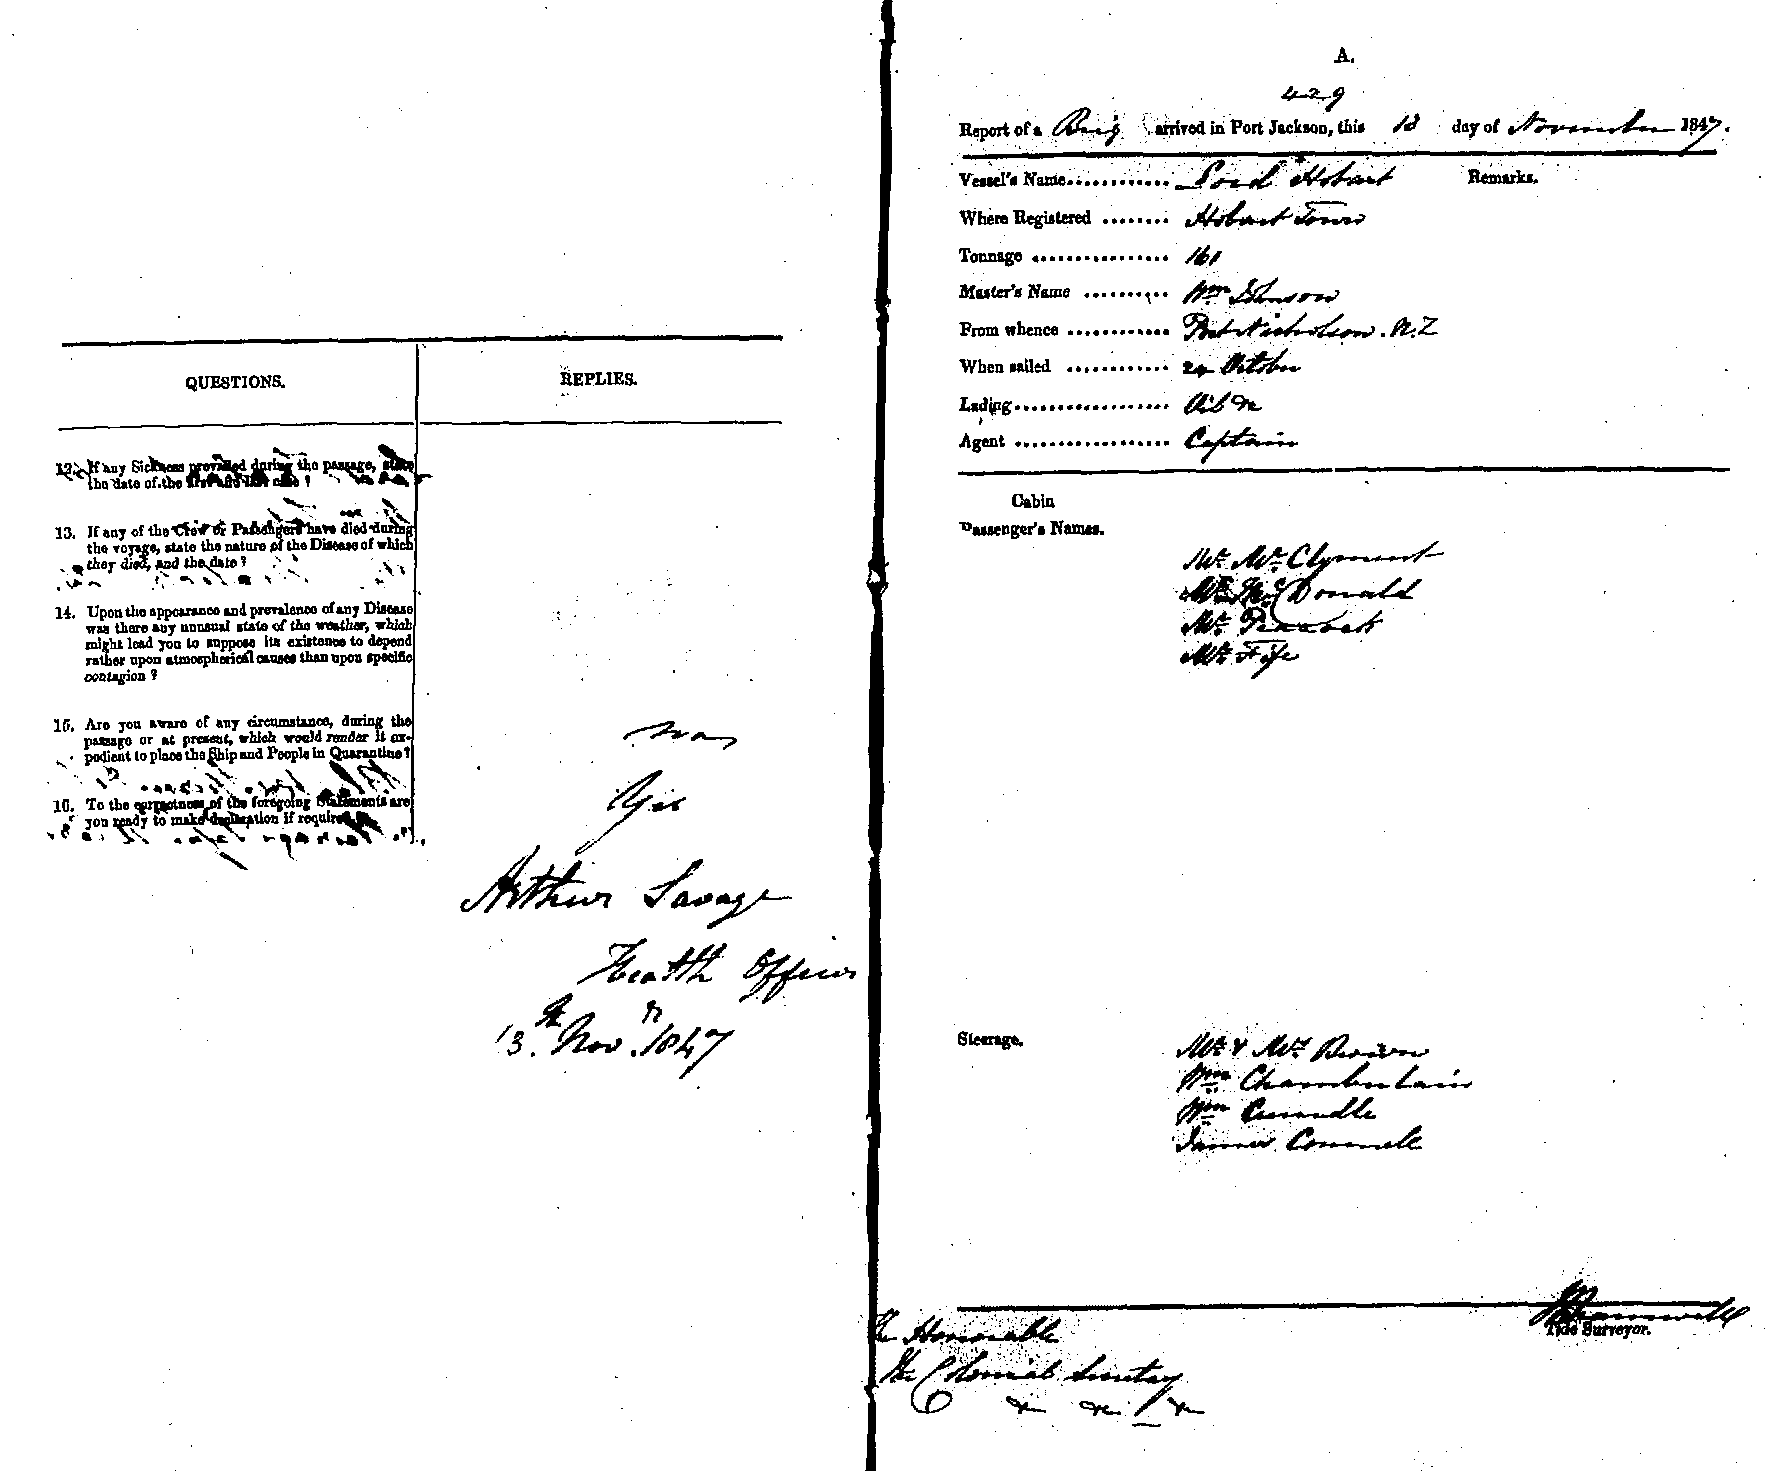 QUESTIONS.
REPLIES.
12. If any Sickness prevailed during the passage, state
the date of the first and last case ?
13. If any of the Crew or Passengers have died during
the voyage, state the nature of the Disease of which
they died, and the date ?
14. Upon the appearance and prevalence of any Disease
was there any unusual state of the weather, which
might lead you to suppose its existence to depend
rather upon atmospherical causes than upon specific
contagion ?
15. Are you aware of any circumstance, during the
passage or at present, which would render it ex-
pedient to place the Ship and People in Quarantine ?
16. To the correctness of the foregoing Statements are
you ready to make declaration if required
Yes
Arthur Savage
Health Officer
13th Novr. 1847
A.
429
Report of a Brig arrived in Port Jackson, this 13 day of November 1847.
Vessel's Name............ Lord Hobart
Remarks.
Where Registered ........ Hobart Town
Tonnage ................ 161
Master's Name .......... Wm Johnson
From whence ............ Port Nicholson. N.Z
When sailed ............ 24 October
Lading.................. Oil &c
Agent .................. Captain
Cabin
Passenger's Names.
Mr. Mc. Clyment
Mr. Mc. Donald
Mr. Peacock
Mr. Fife
Steerage.
Mr. & Mrs Brown
Wm Chamberlain
Wm
James Connell
Tide Surveyor.
The Honorable
The Colonial Secretary
&c &c &c